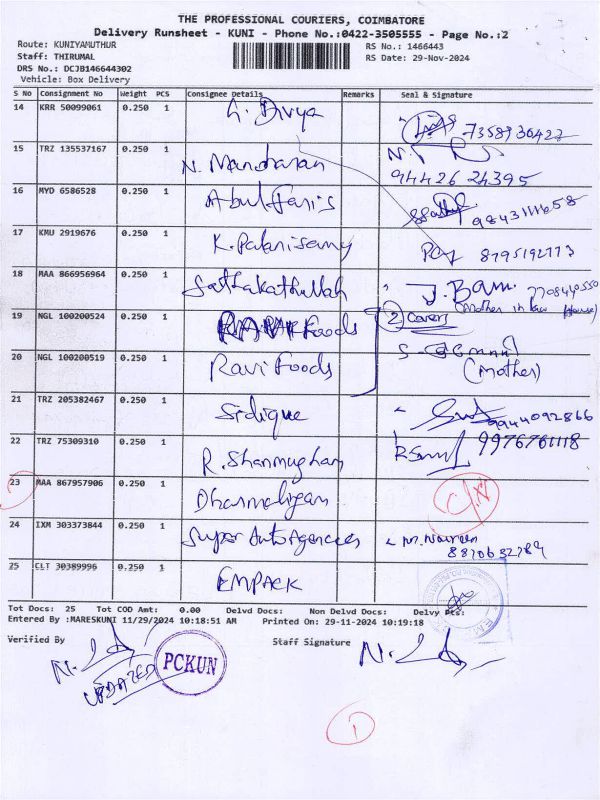 THE PROFESSIONAL COURIERS, COIMBATORE
Delivery Runsheet - KUNI - Phone No.:0422-3505555 - Page No.:2
Route: KUNIYAMUTHUR
Staff: THIRUMAL
DRS No.: DCJB146644302
Vehicle: Box Delivery
RS No.: 1466443
RS Date: 29-Nov-2024
S No Consignment No Weight PCS Consignee Details Remarks Seal & Signature
14 KRR 50099061 0.250 1 G. Divya 7358936422
15 TRZ 135537167 0.250 1 N. Manoharan 94426 24395
16 MYD 6586528 0.250 1 Abul faris 9843111658
17 KMU 2919676 0.250 1 K. Palanisamy 8795192773
18 MAA 866956964 0.250 1 Sathakathullah J. Banu
(Mother in law House)
19 NGL 100200524 0.250 1 Foods 2 Covers
20 NGL 100200519 0.250 1 Ravi Foods (Mother)
21 TRZ 205382467 0.250 1 Sidique 9944092866
22 TRZ 75309310 0.250 1 R. Shanmugham 9976761118
23 MAA 867957906 0.250 1 Dharmaligam
24 IXM 303373844 0.250 1 Super Auto Agencies
25 CLT 30389996 0.250 1 EMPACK
Tot Docs: 25 Tot COD Amt: 0.00 Delvd Docs: Non Delvd Docs: Delvy Pts:
Entered By :MARESKUNI 11/29/2024 10:18:51 AM Printed On: 29-11-2024 10:19:18
Verified By Staff Signature
UPDATED
PCKUN
1